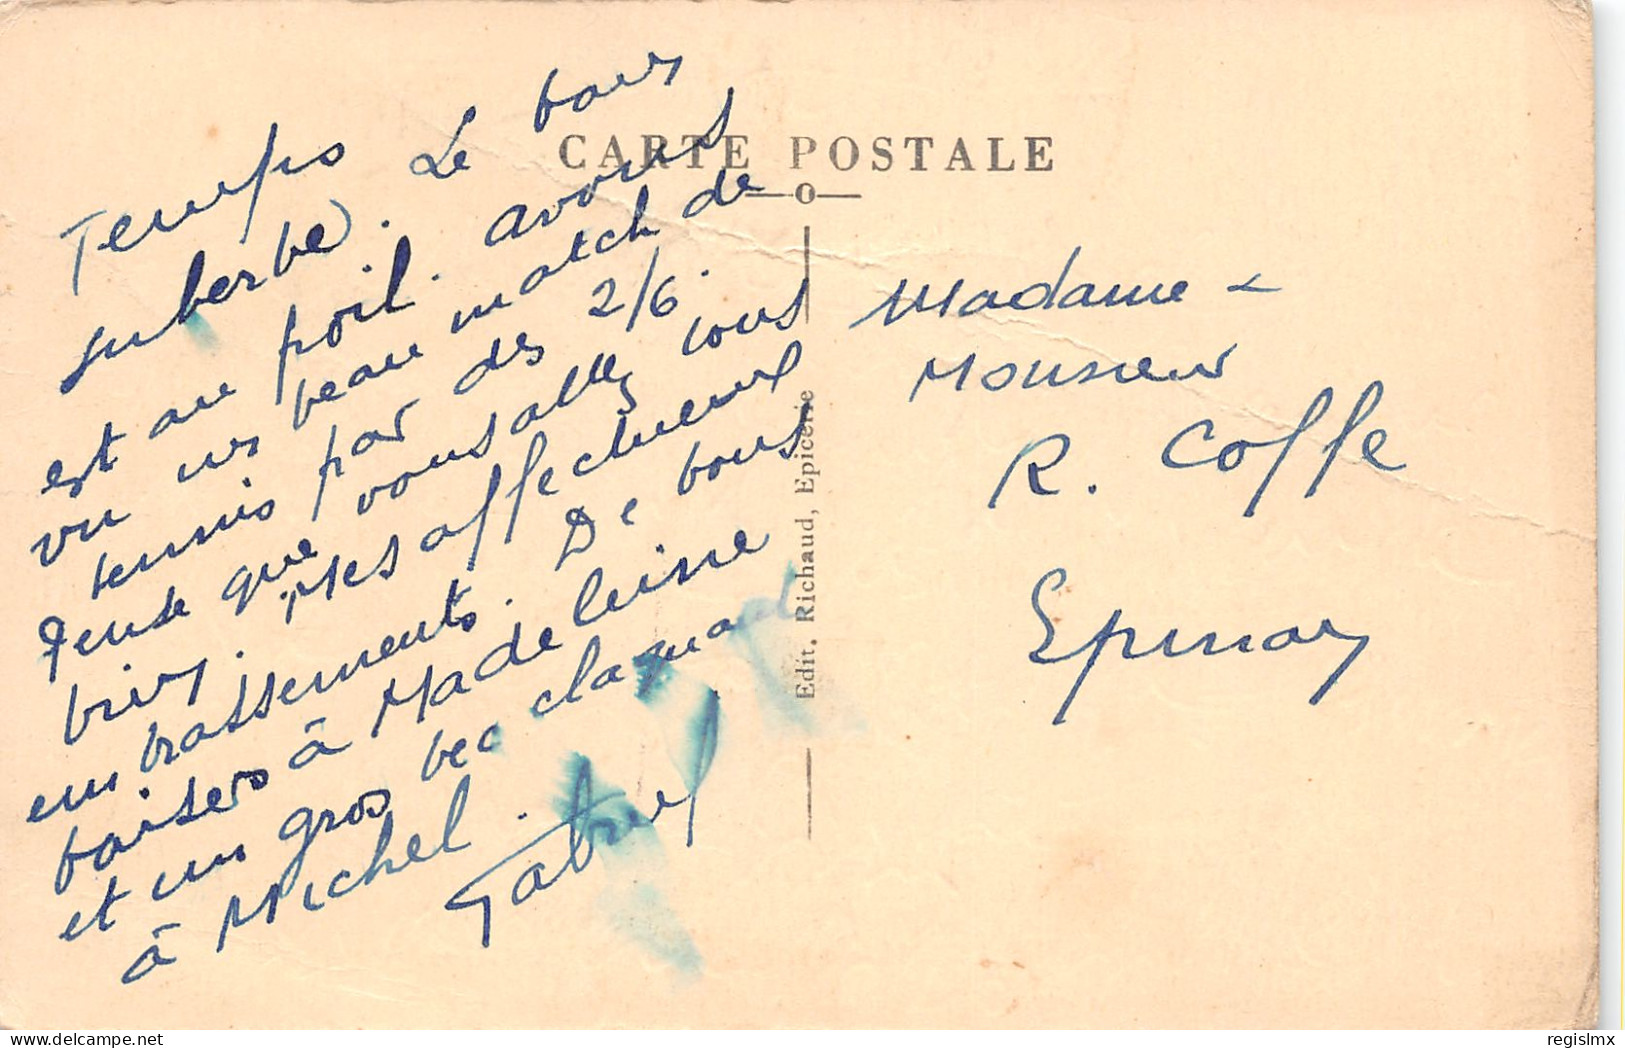 CARTE POSTALE
Temps
superbe. Le bain
est au poil. avons
vu un beau match de
tennis par des 2/6.
Pense que vous allez tous
bien. Mes affectueux
embrassements. De bons
baisers à Madeleine
et un gros bec
à Michel.
Gabriel
Edit. Richaud, Epicerie
Madame &
Monsieur
R. Coffe
Epinay
regislmx